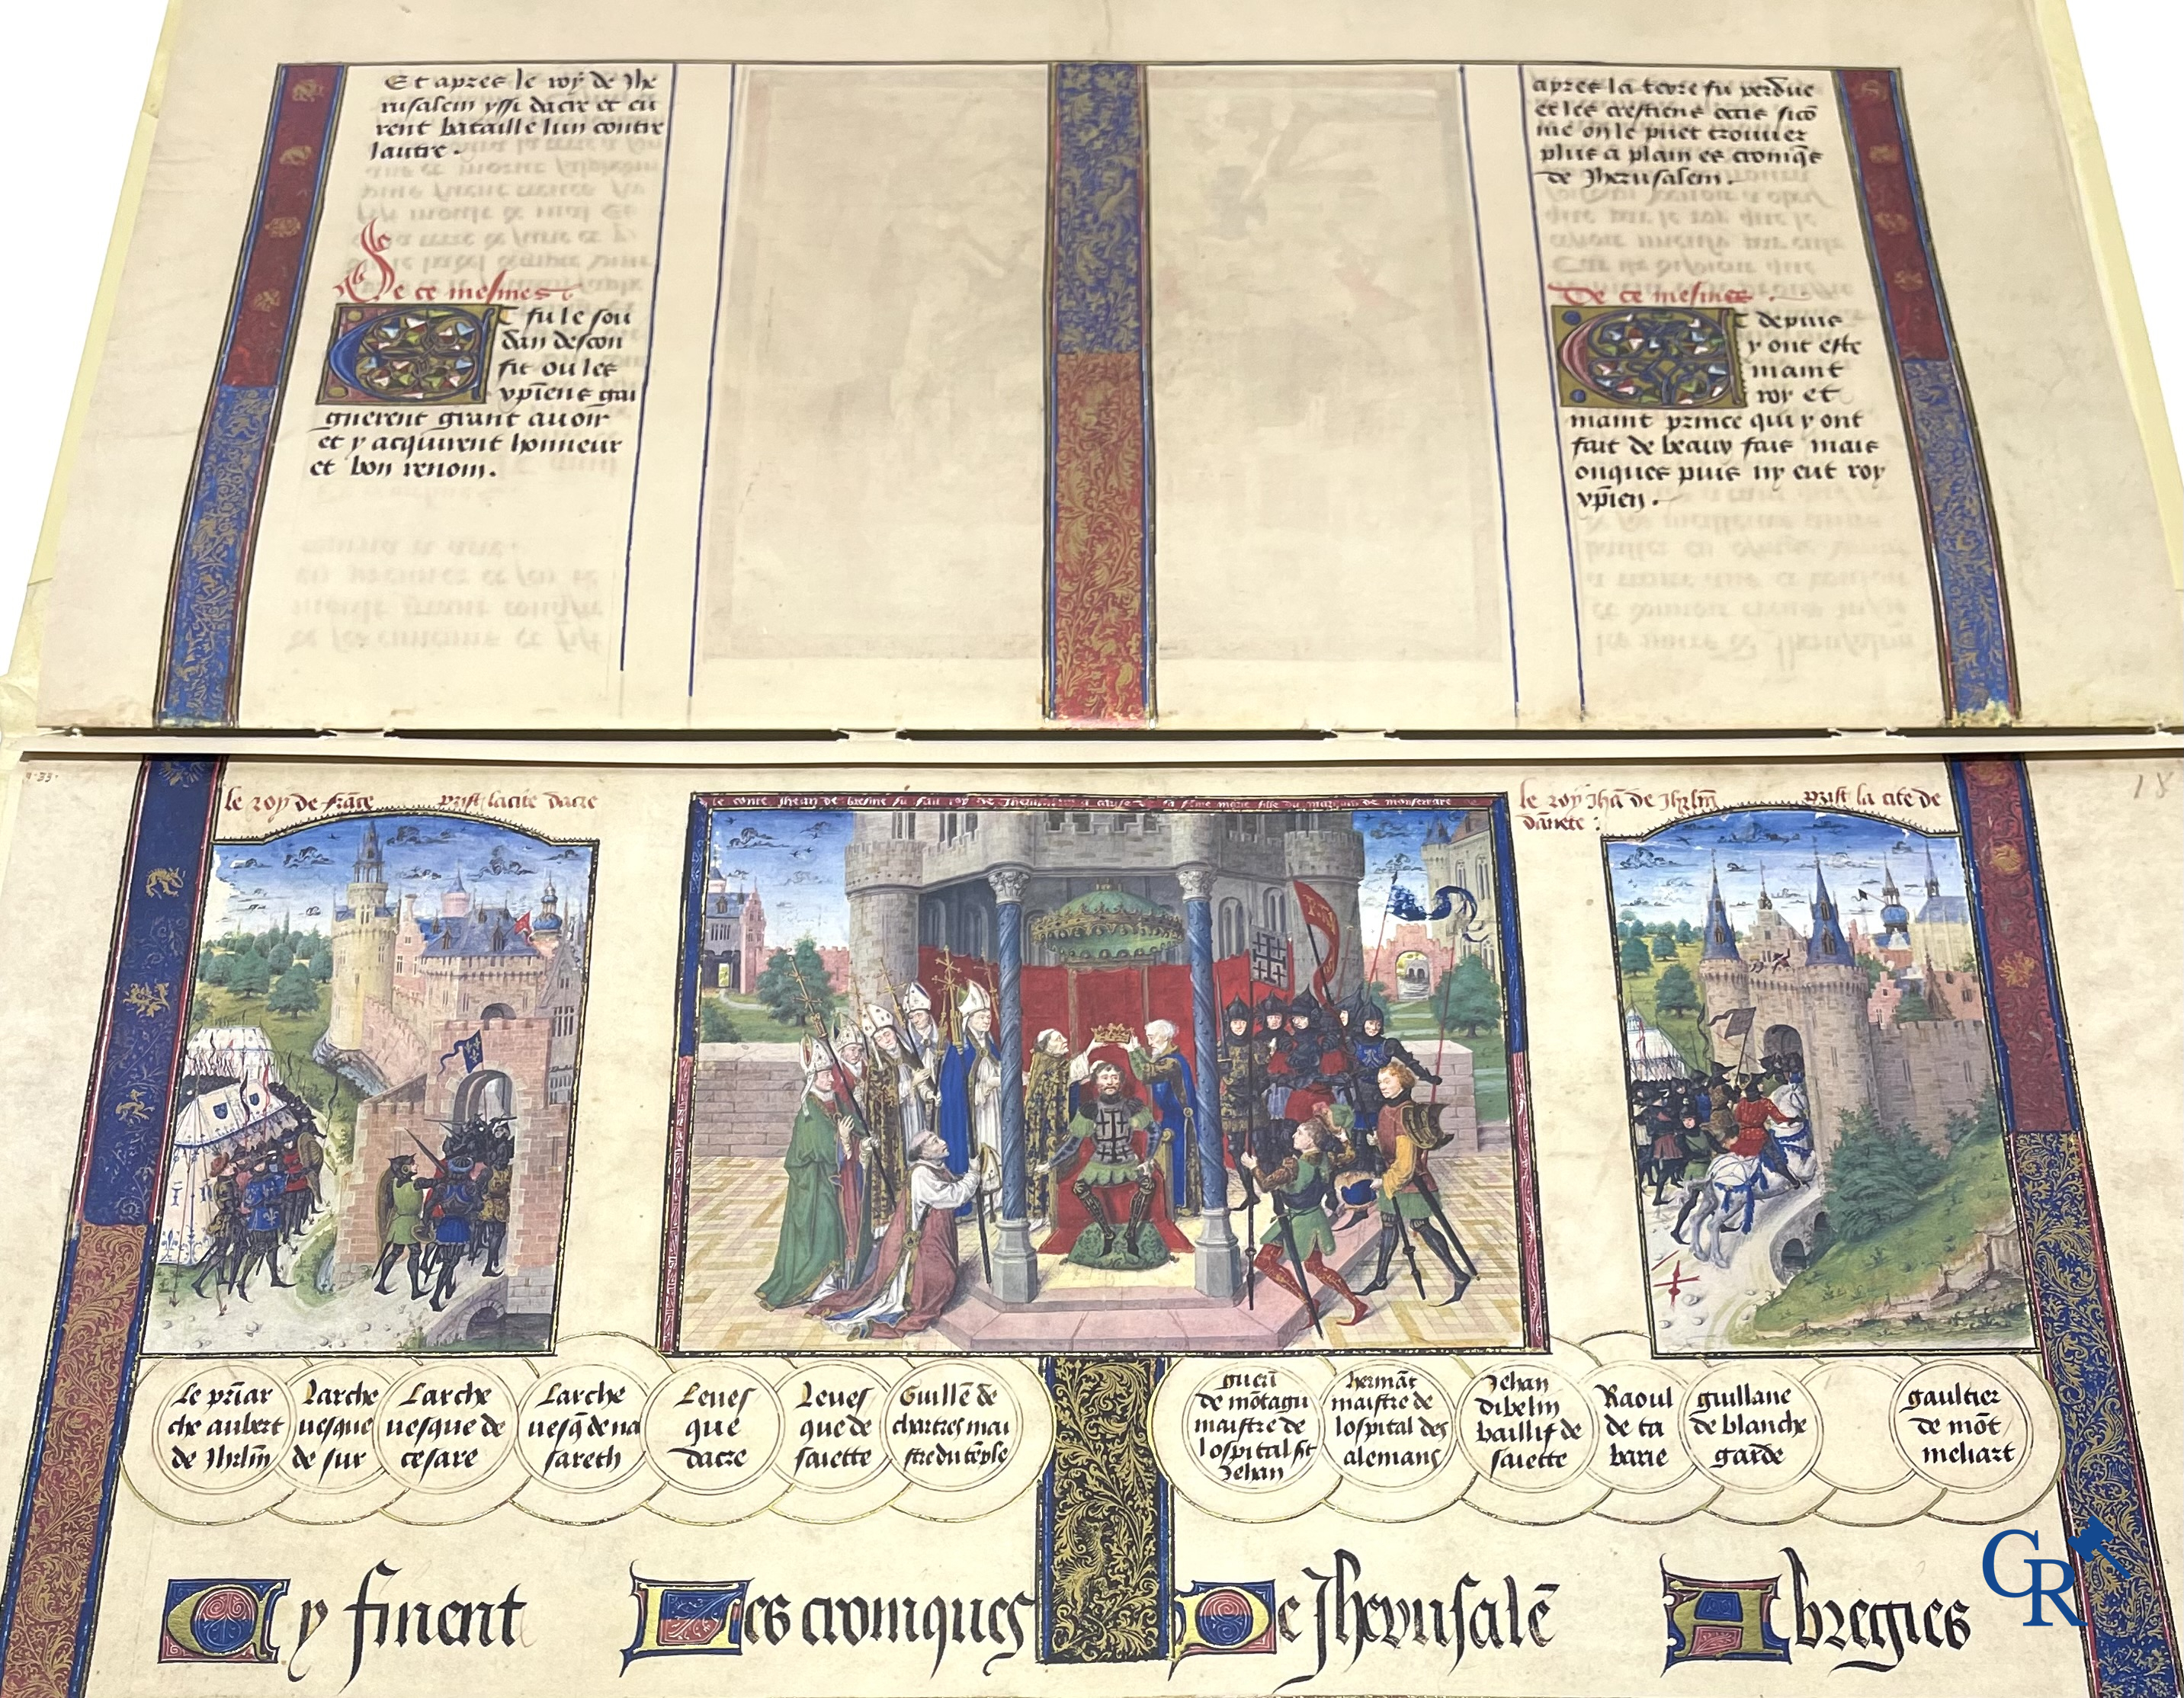 Et apres le roy de Jhe
rusalem yssi dacre et eu
rent bataille lun contre
lautre.
De ce mesmes
Et fu le sou
dan descon
fit ou les
xpīens gai
gnerent grant auoir
et y acquirent honneur
et bon renom.
apres la terre fu perdue
et les crestiens occis sicō
me on le puet trouuer
plus a plain es croniq̄s
de Jherusalem.
De ce mesmes.
Et depuis
y ont este
maint
roy et
maint prince qui y ont
fait de beaux fais mais
onques puis ny eut roy
xpīen.
18
le roy de frāce prist la cite dacre
le conte Jhean de bresne fu fait roy de Jherusalem a cause de sa feme marie fille du marquis de montferrare
le roy Jhā de Jhrlm̄ prist la cite de
damete:
le priar
che aubert
de Jhrlm̄
Larche
uesque
de sur
Larche
uesque de
cesare
Larche
uesq̄ de na
sareth
Leues
que
dacre
Leues
que de
saiette
Guillē de
chartres mai
stre du tēple
guerī
de mōtagu
maistre de
lospital st
Jehan
hermāt
maistre de
lospital des
alemans
Jehan
dibelin
baillif de
saiette
Raoul
de ta
barie
guillaue
de blanche
garde
gaultier
de mōt
meliart
Cy finent Les croniques De Jherusalē Abregies
CR